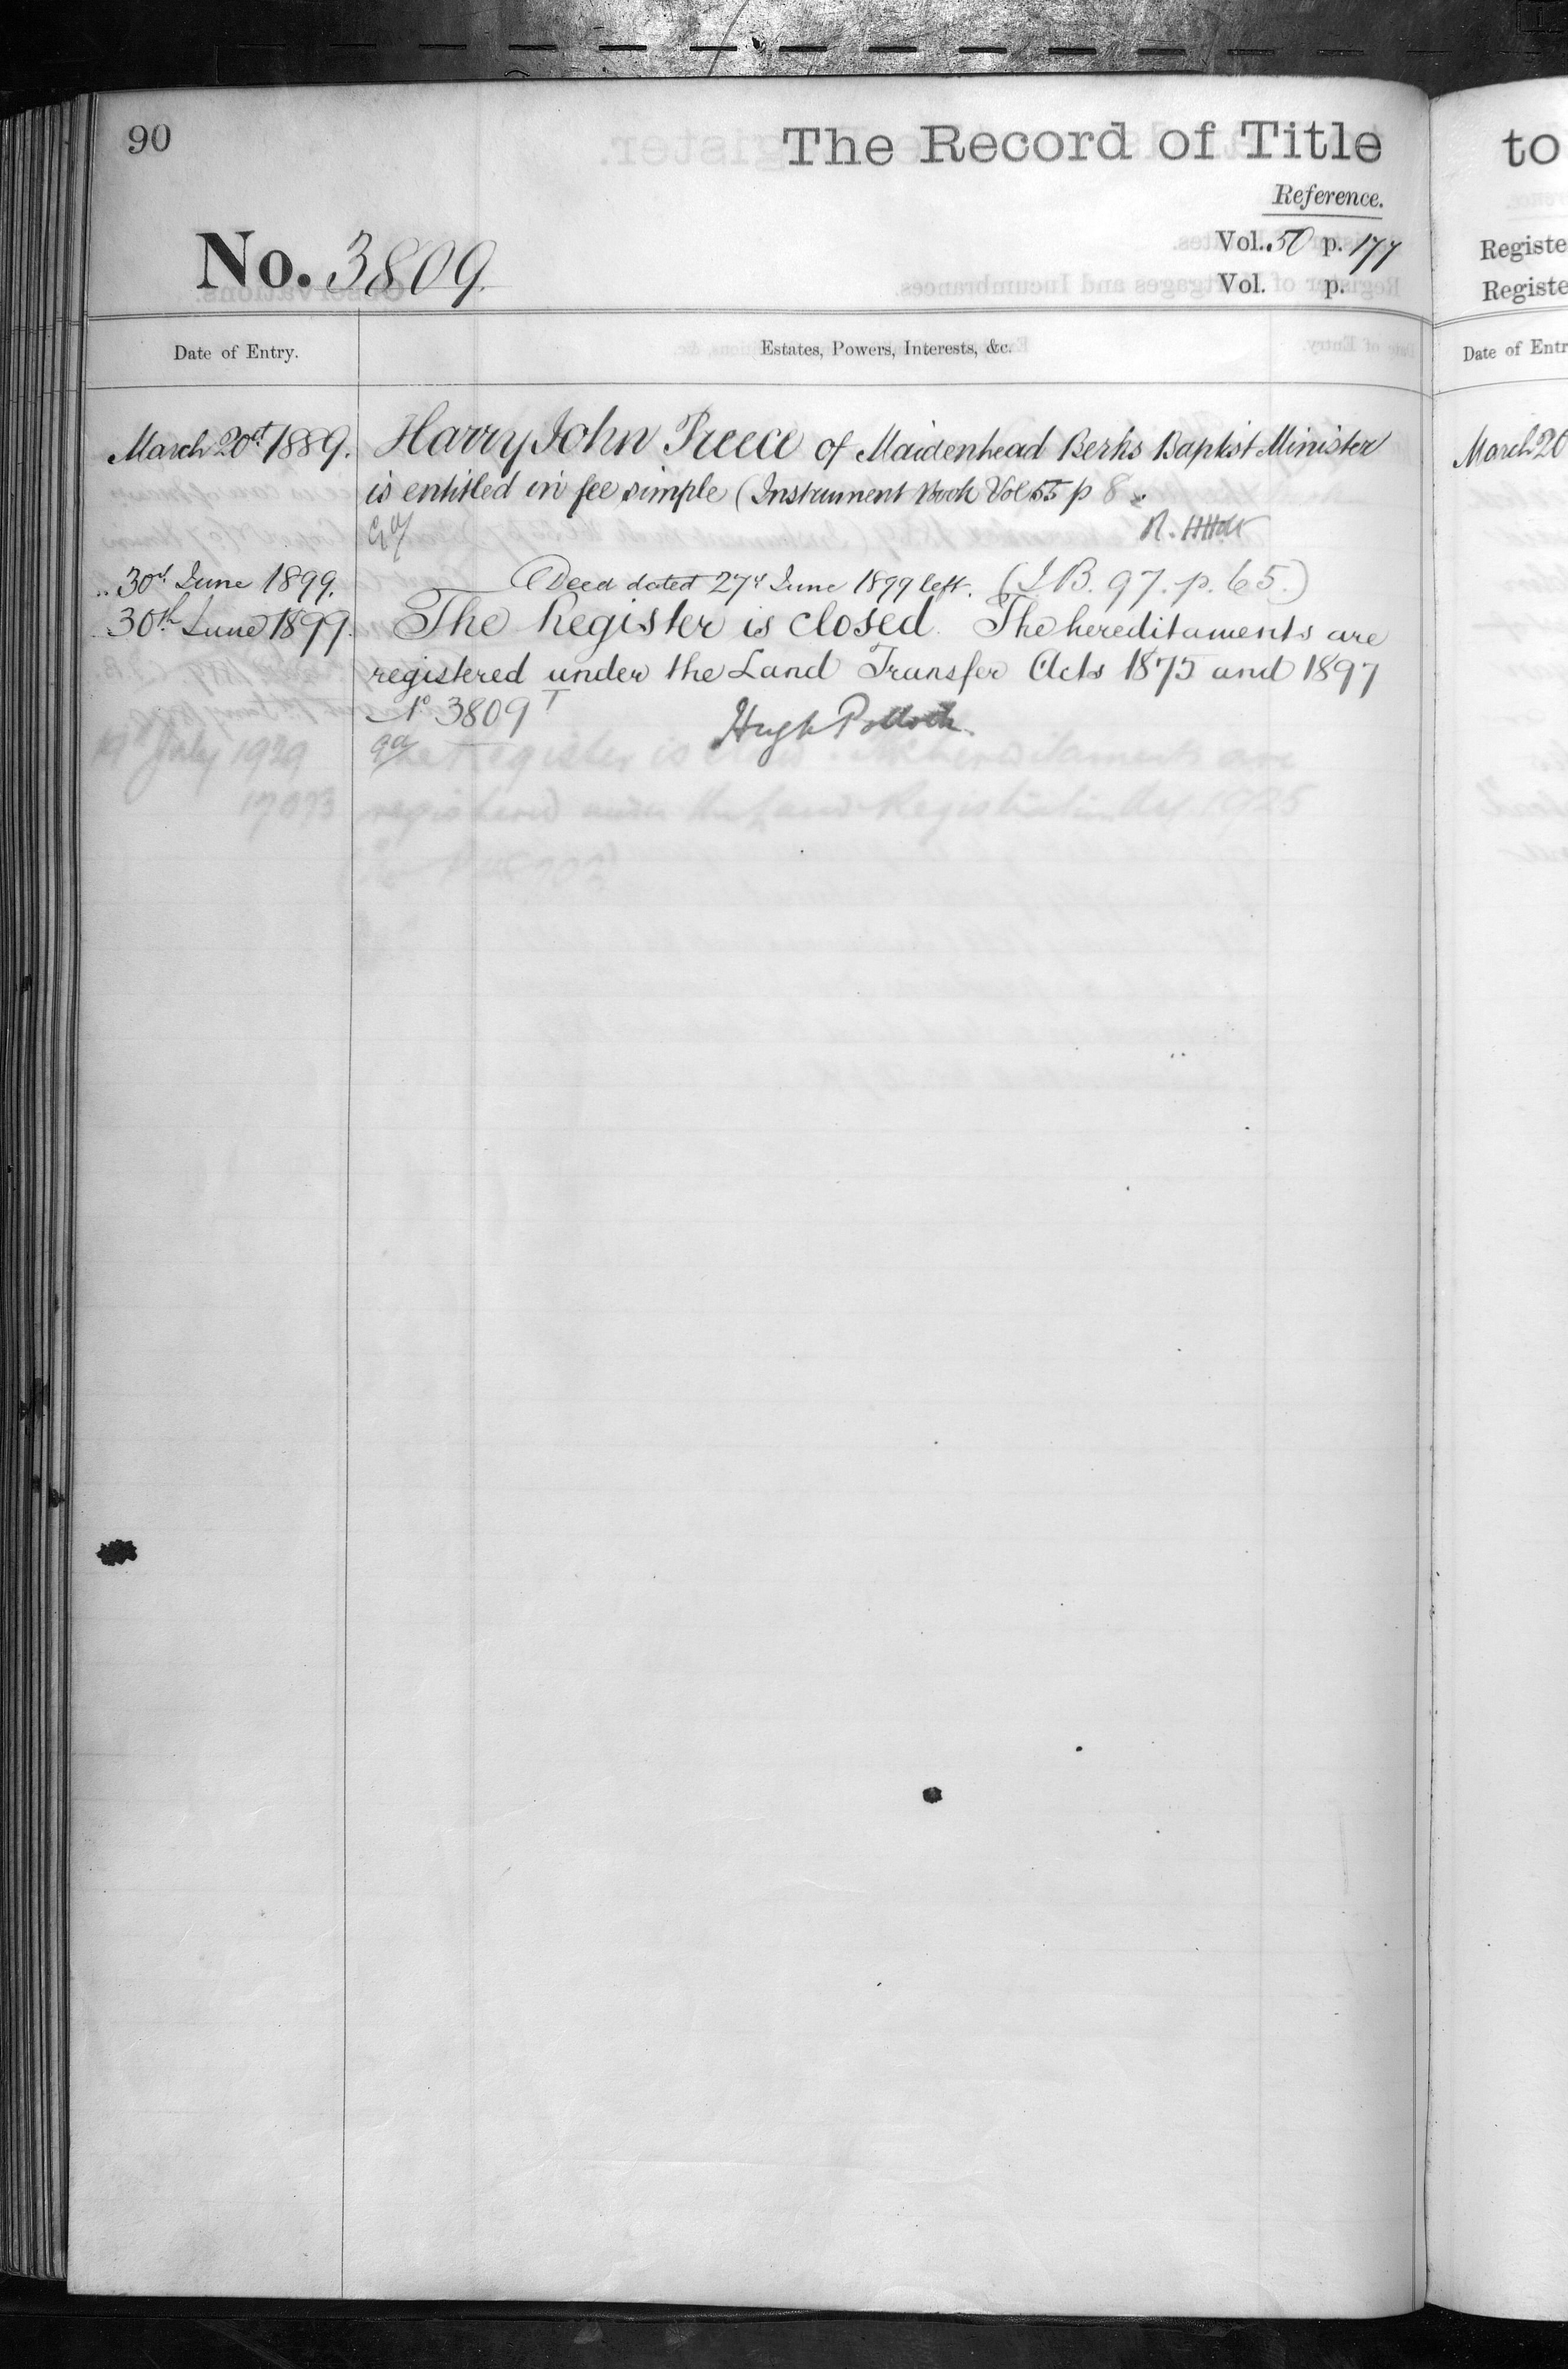 90
The Record of Title
Reference.
No. 3809.
Vol. 50 p. 177
Vol. p.
Date of Entry.
Estates, Powers, Interests, &c.
March 20th 1889.
Harry John Preece of Maidenhead Berks Baptist Minister
is entitled in fee simple (Instrument Book Vol 55 p 8
30th June 1899.
Deed dated 27th June 1899 left. (I.B. 97. p. 65.)
30th June 1899.
The Register is closed. The hereditaments are
registered under the Land Transfer Acts 1875 and 1897
No 3809 T
Hugh Pollock.
July 1929
The Register is closed. The hereditaments are
registered under the Land Registration Act 1925
to
Registe
Registe
Date of Entr
March 20